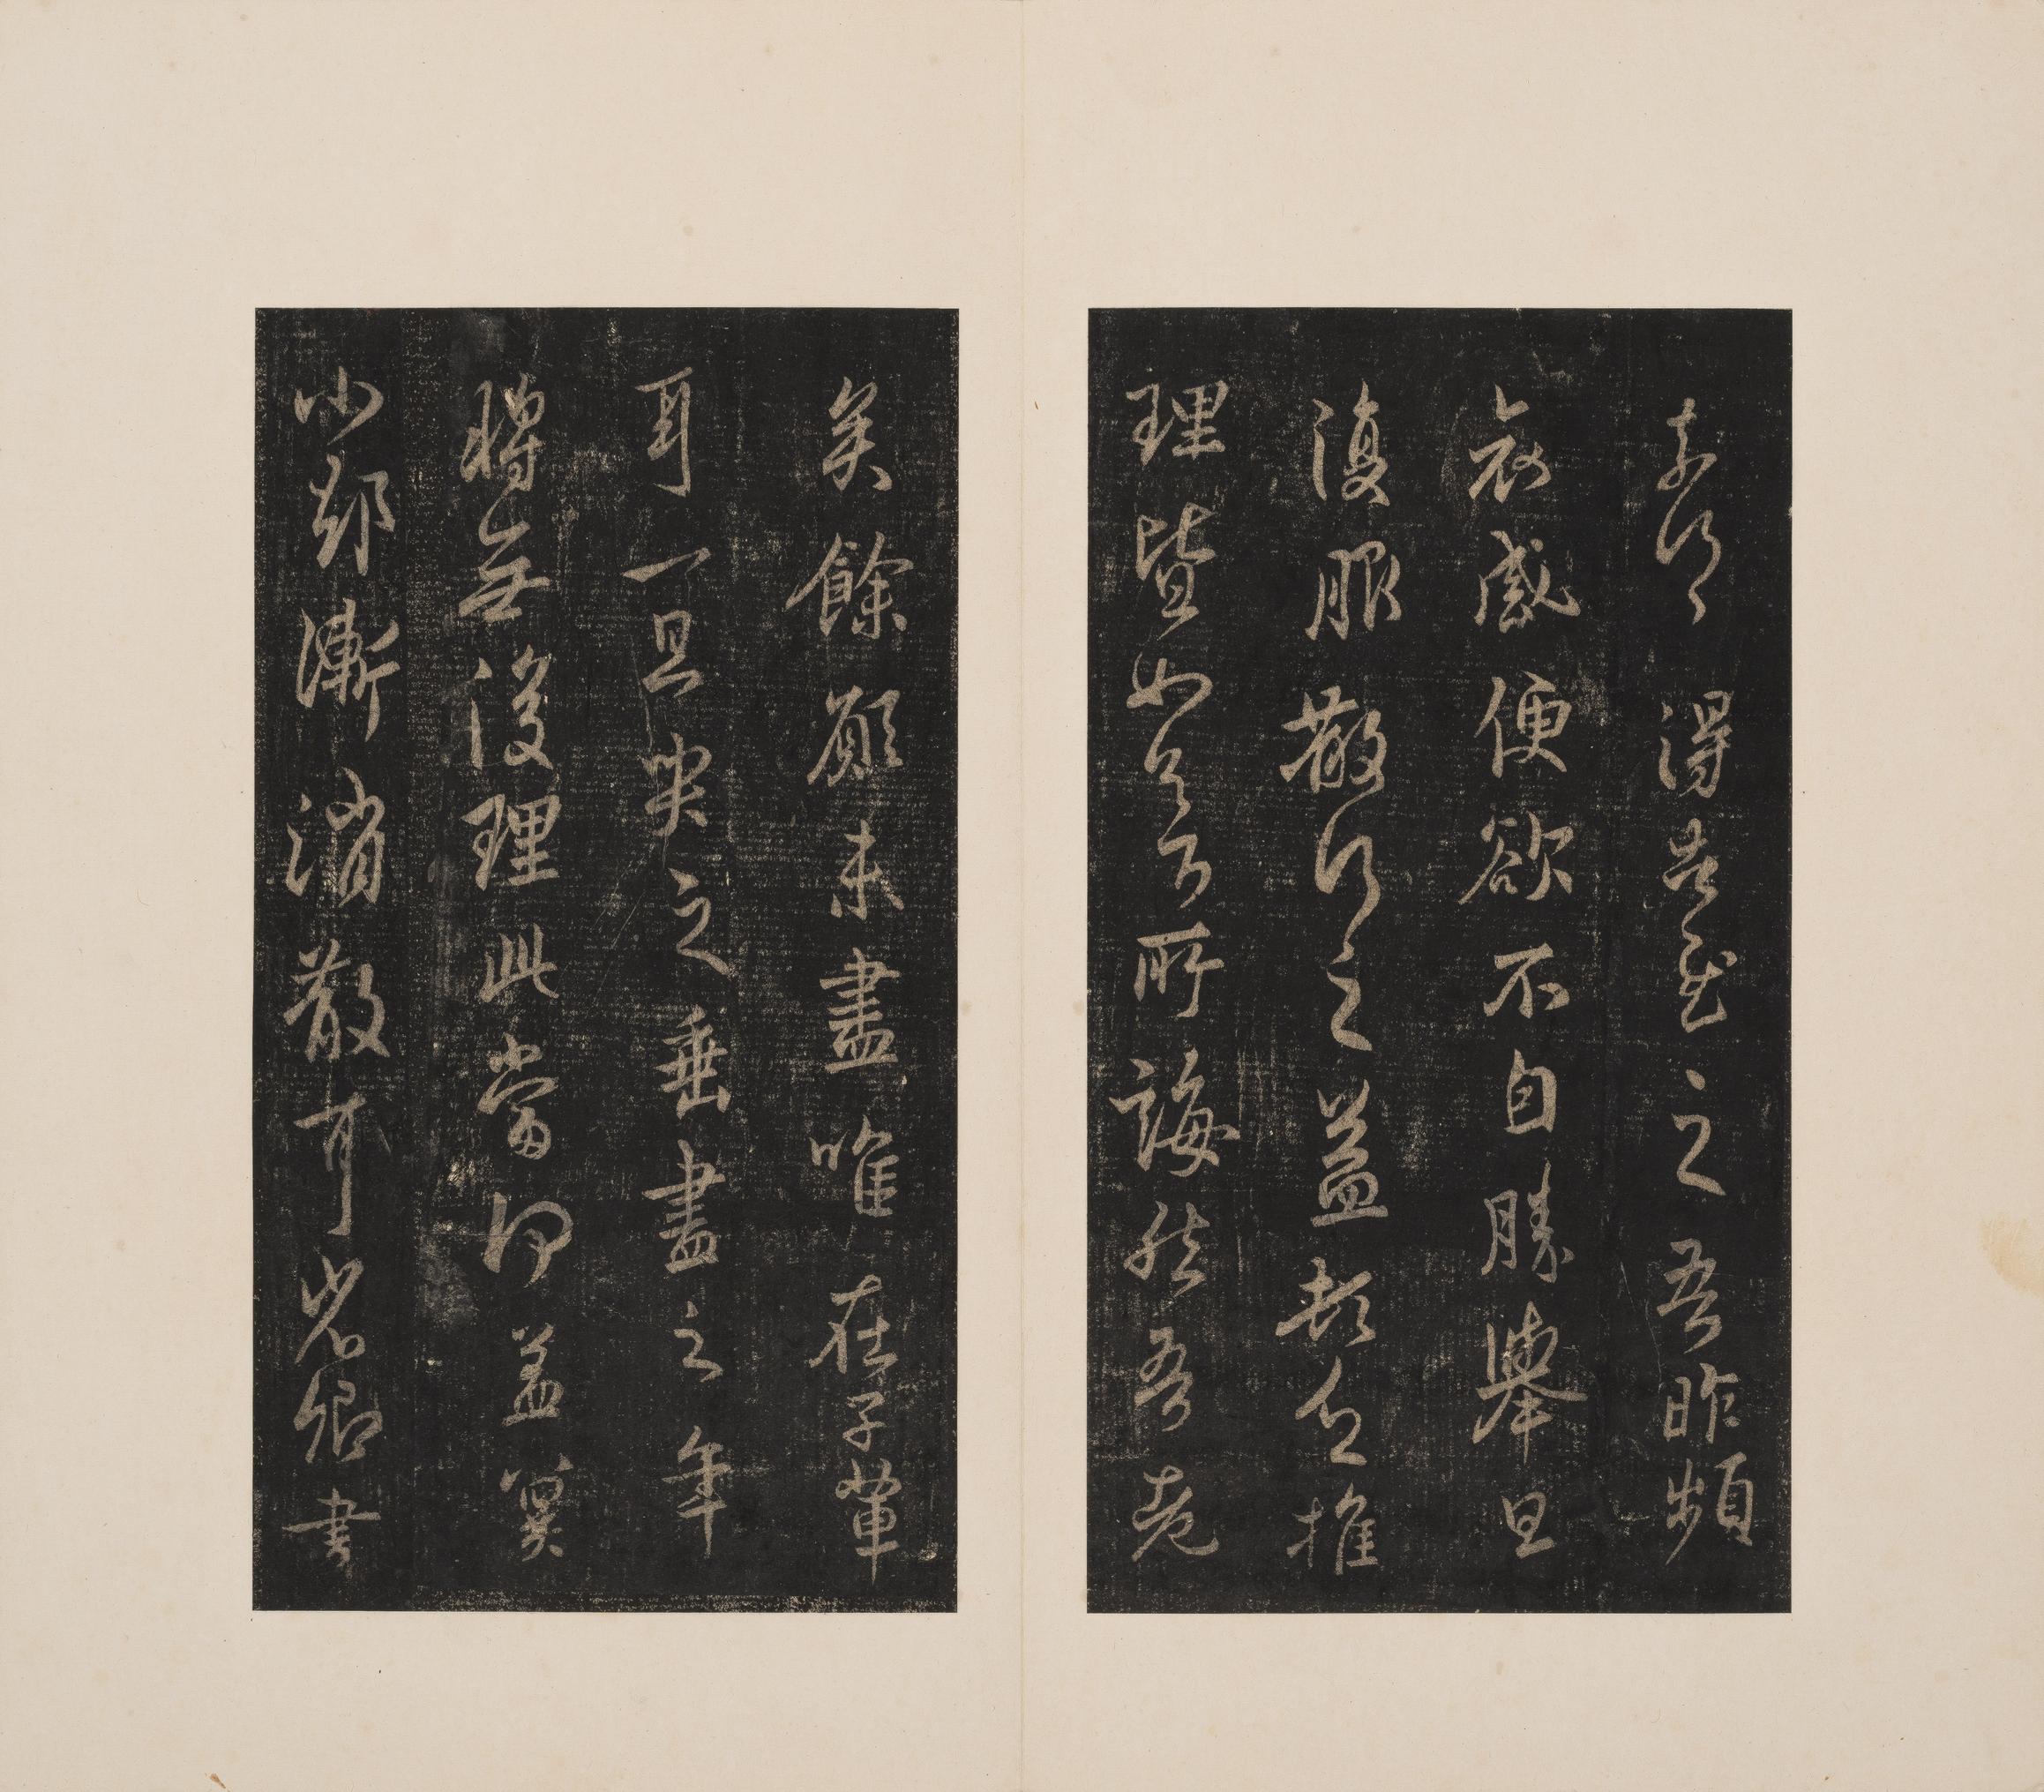 得之吾昨頻
哀感便欲不自勝舉旦
復服散行之益頓乏推
理皆如足下所誨然吾老
矣餘願未盡唯在子輩
耳一旦哭之垂盡之年
轉無復理此當何益冀
小却漸消散耳省卿書